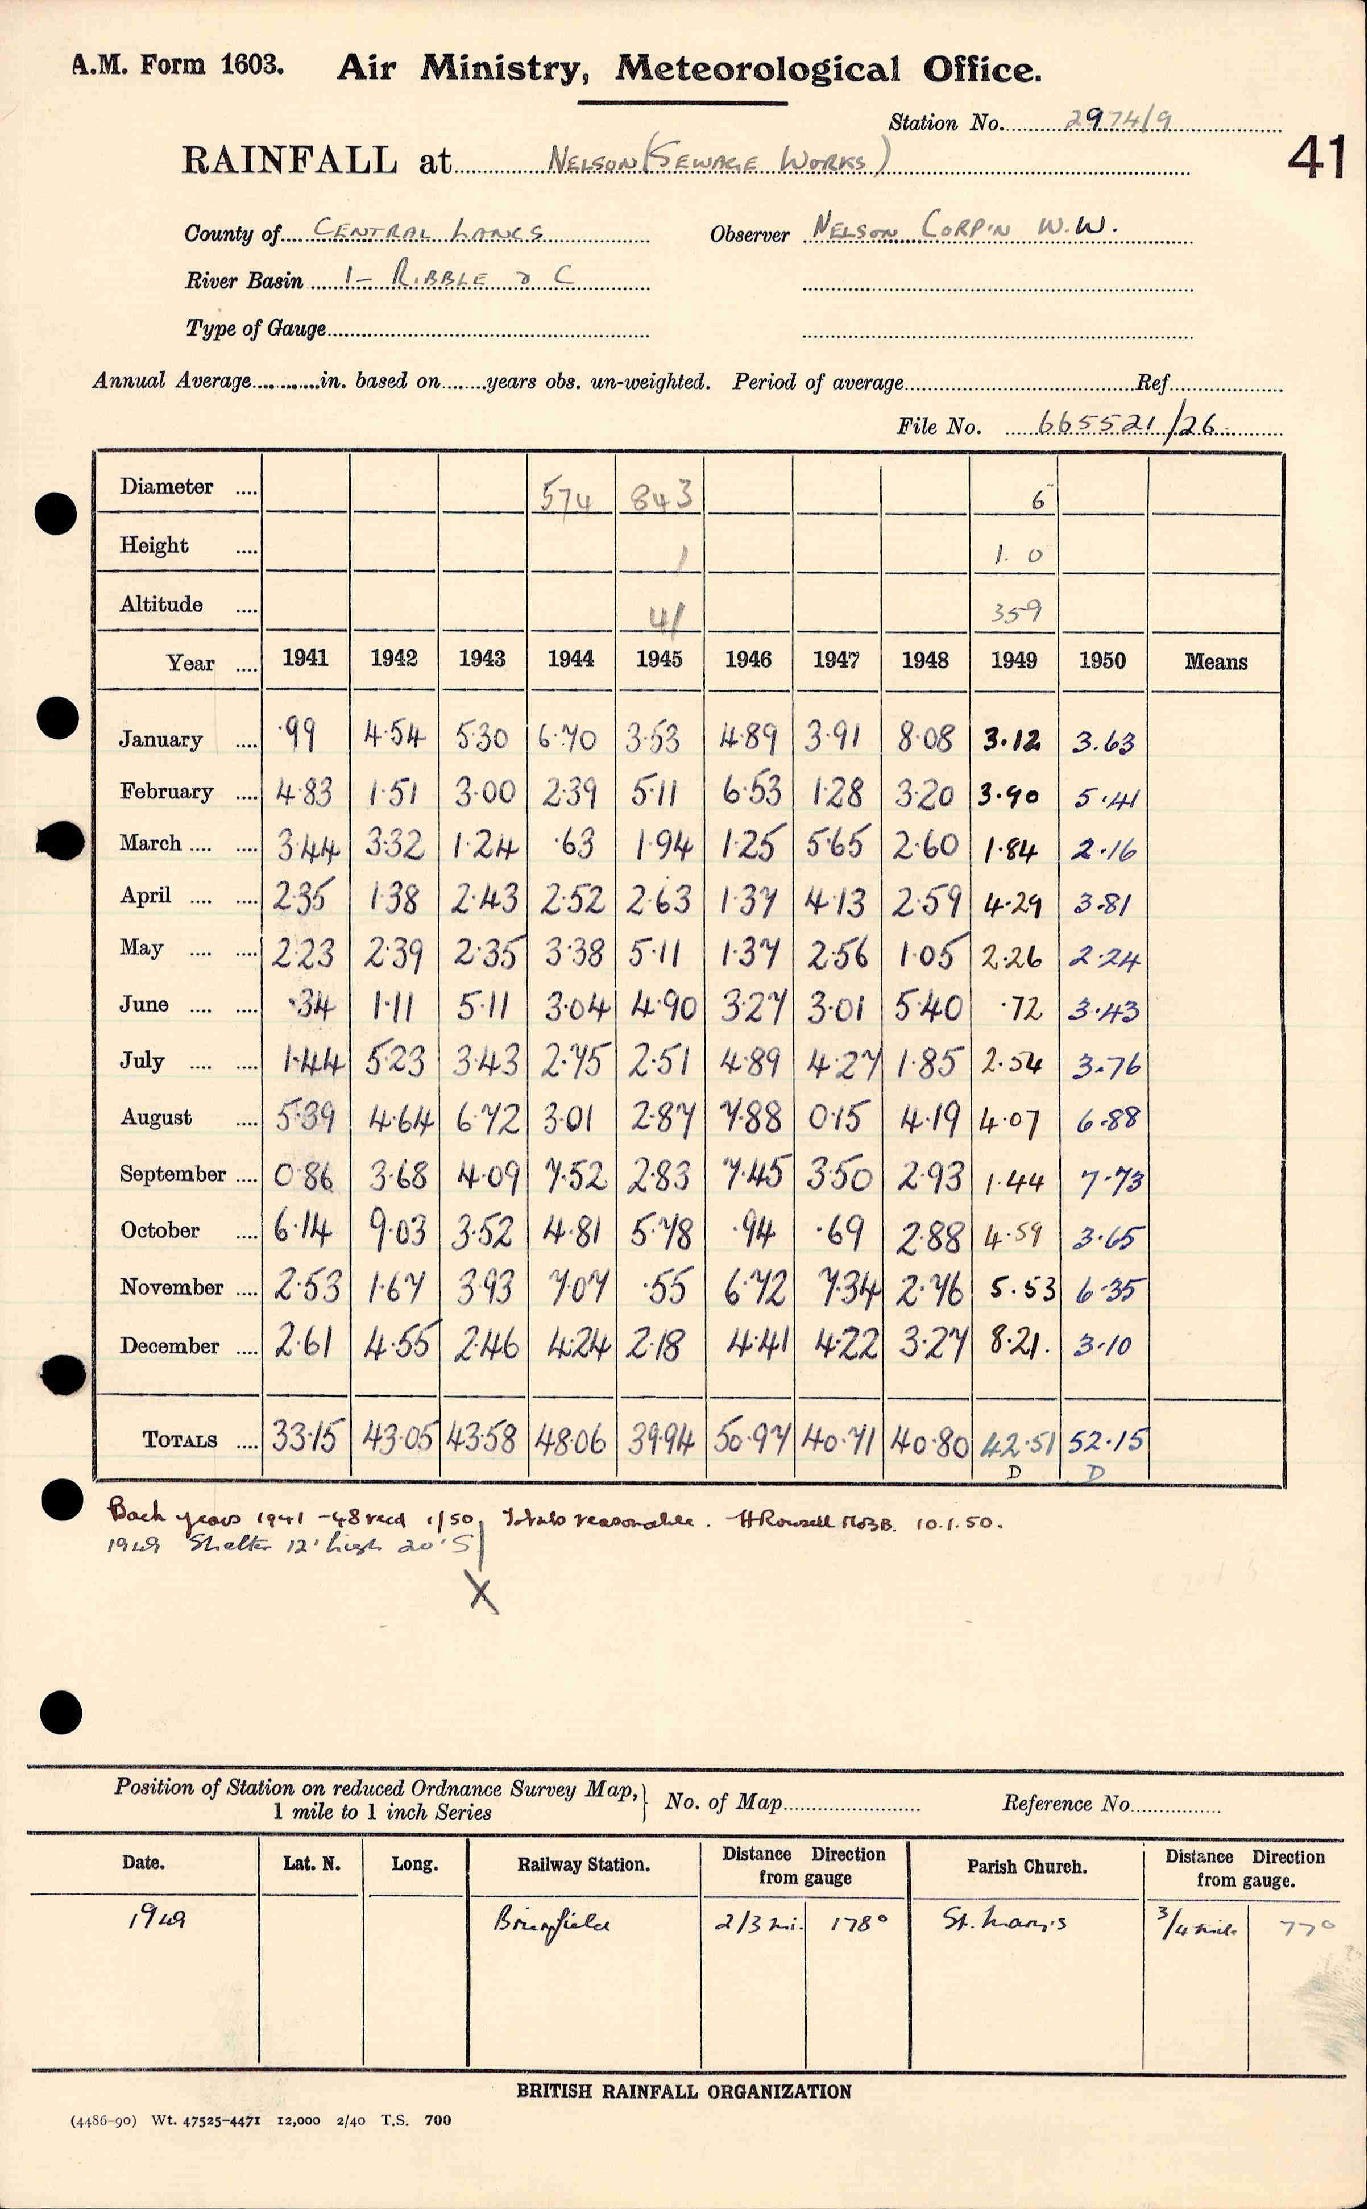 A.M. Form 1603. Air Ministry, Meteorological Office.
Station No. 2974/9
41
RAINFALL at NELSON (SEWAGE WORKS)
County of CENTRAL LANCS Observer NELSON CORP'N W.W.
River Basin 1 - RIBBLE & C
Type of Gauge
Annual Average in. based on years obs. un-weighted. Period of average Ref
File No. 665521/26
Diameter 574 843 6
Height 1 1. 0
Altitude 41 359
Year 1941 1942 1943 1944 1945 1946 1947 1948 1949 1950 Means
January ·99 4·54 5·30 6·70 3·53 4·89 3·91 8·08 3·12 3·63
February 4·83 1·51 3·00 2·39 5·11 6·53 1·28 3·20 3·90 5·41
March 3·44 3·32 1·24 ·63 1·94 1·25 5·65 2·60 1·84 2·16
April 2·35 1·38 2·43 2·52 2·63 1·37 4·13 2·59 4·29 3·81
May 2·23 2·39 2·35 3·38 5·11 1·37 2·56 1·05 2·26 2·24
June ·34 1·11 5·11 3·04 4·90 3·27 3·01 5·40 ·72 3·43
July 1·44 5·23 3·43 2·75 2·51 4·89 4·27 1·85 2·54 3·76
August 5·39 4·64 6·72 3·01 2·87 7·88 0·15 4·19 4·07 6·88
September 0·86 3·68 4·09 7·52 2·83 7·45 3·50 2·93 1·44 7·73
October 6·14 9·03 3·52 4·81 5·78 ·94 ·69 2·88 4·59 3·65
November 2·53 1·67 3·93 7·07 ·55 6·72 7·34 2·76 5·53 6·35
December 2·61 4·55 2·46 4·24 2·18 4·41 4·22 3·27 8·21. 3·10
TOTALS 33·15 43·05 43·58 48·06 39·94 50·97 40·71 40·80 42·51 52·15
D D
Back years 1941 - 48 recd 1/50. Totals reasonable. H Rowsell 10.1.50.
1949 Shelter 12' high 20' S
X
Position of Station on reduced Ordnance Survey Map, 1 mile to 1 inch Series } No. of Map Reference No.
Date. Lat. N. Long. Railway Station. Distance Direction from gauge Parish Church. Distance Direction from gauge.
1949 Brierfield 2/3 mi. 178° St. Mary's 3/4 mile 77°
BRITISH RAINFALL ORGANIZATION
(4486-90) Wt. 47525-4471 12,000 2/40 T.S. 700